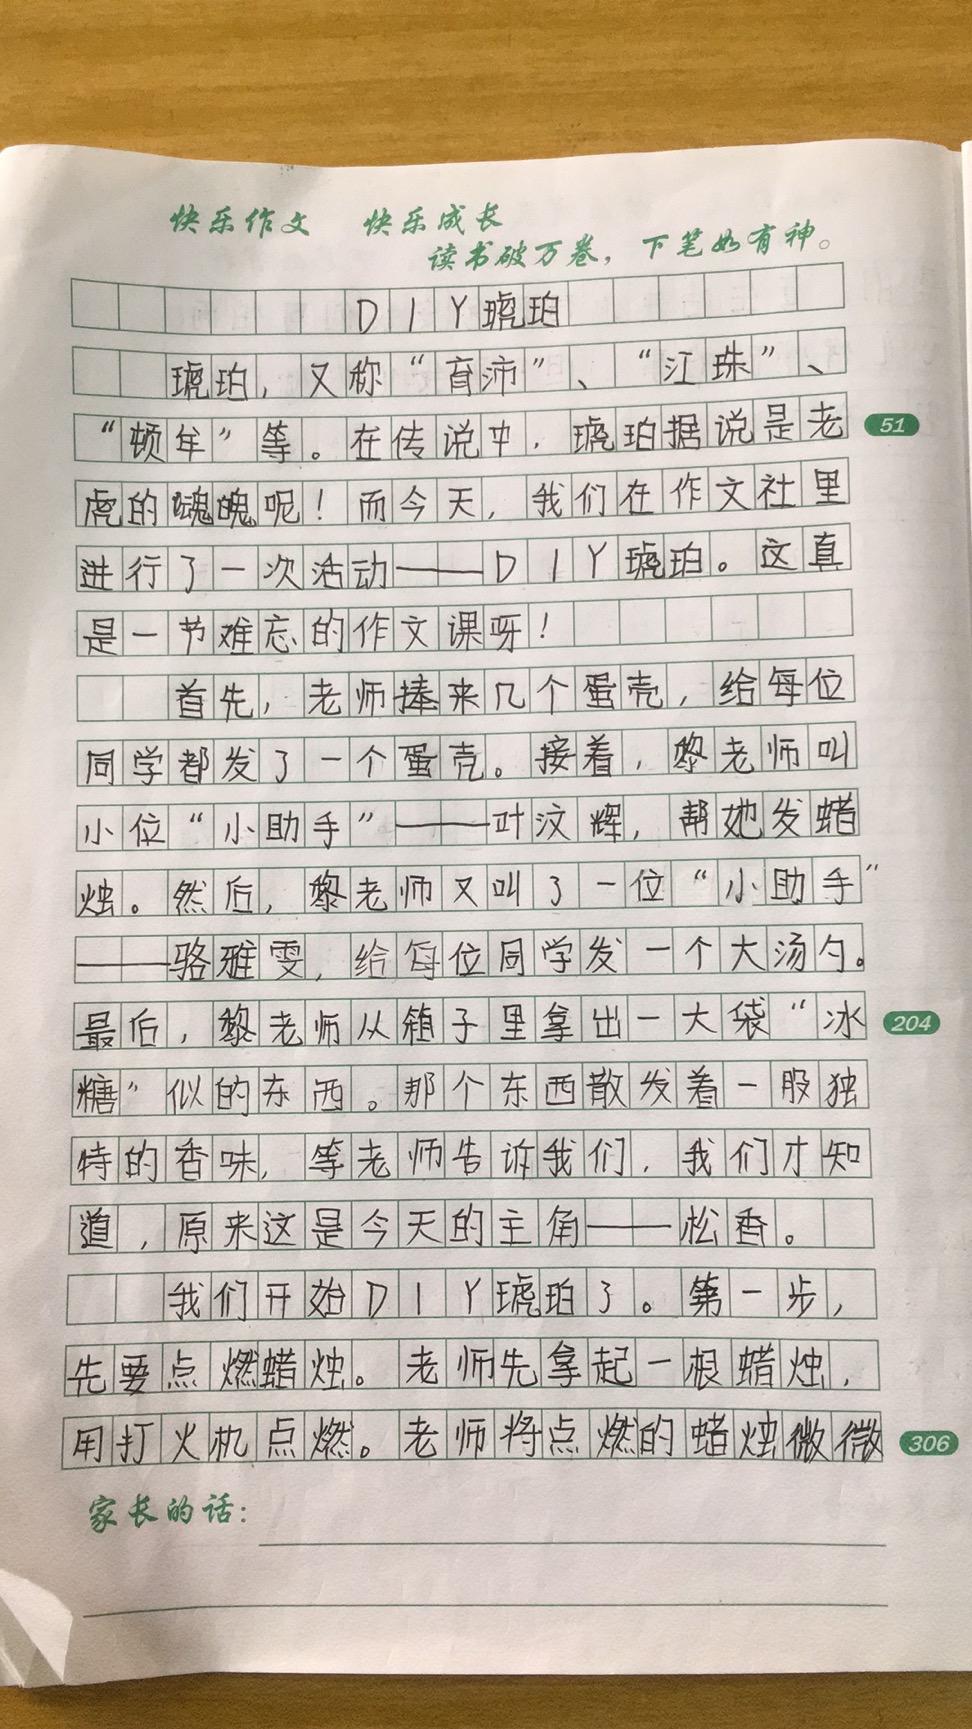 快乐作文 快乐成长
读书破万卷，下笔如有神。
DIY琥珀
琥珀，又称“育沛”、“江珠”、
“顿牟”等。在传说中，琥珀据说是老 51
虎的魂魄呢！而今天，我们在作文社里
进行了一次活动——DIY琥珀。这真
是一节难忘的作文课呀！
首先，老师捧来几个蛋壳，给每位
同学都发了一个蛋壳。接着，黎老师叫
小位“小助手”——叶汶辉，帮她发蜡
烛。然后，黎老师又叫了一位“小助手”
——骆雅雯，给每位同学发一个大汤勺。
最后，黎老师从箱子里拿出一大袋“冰 204
糖”似的东西。那个东西散发着一股独
特的香味，等老师告诉我们，我们才知
道，原来这是今天的主角——松香。
我们开始DIY琥珀了。第一步，
先要点燃蜡烛。老师先拿起一根蜡烛，
用打火机点燃。老师将点燃的蜡烛微微 306
家长的话：